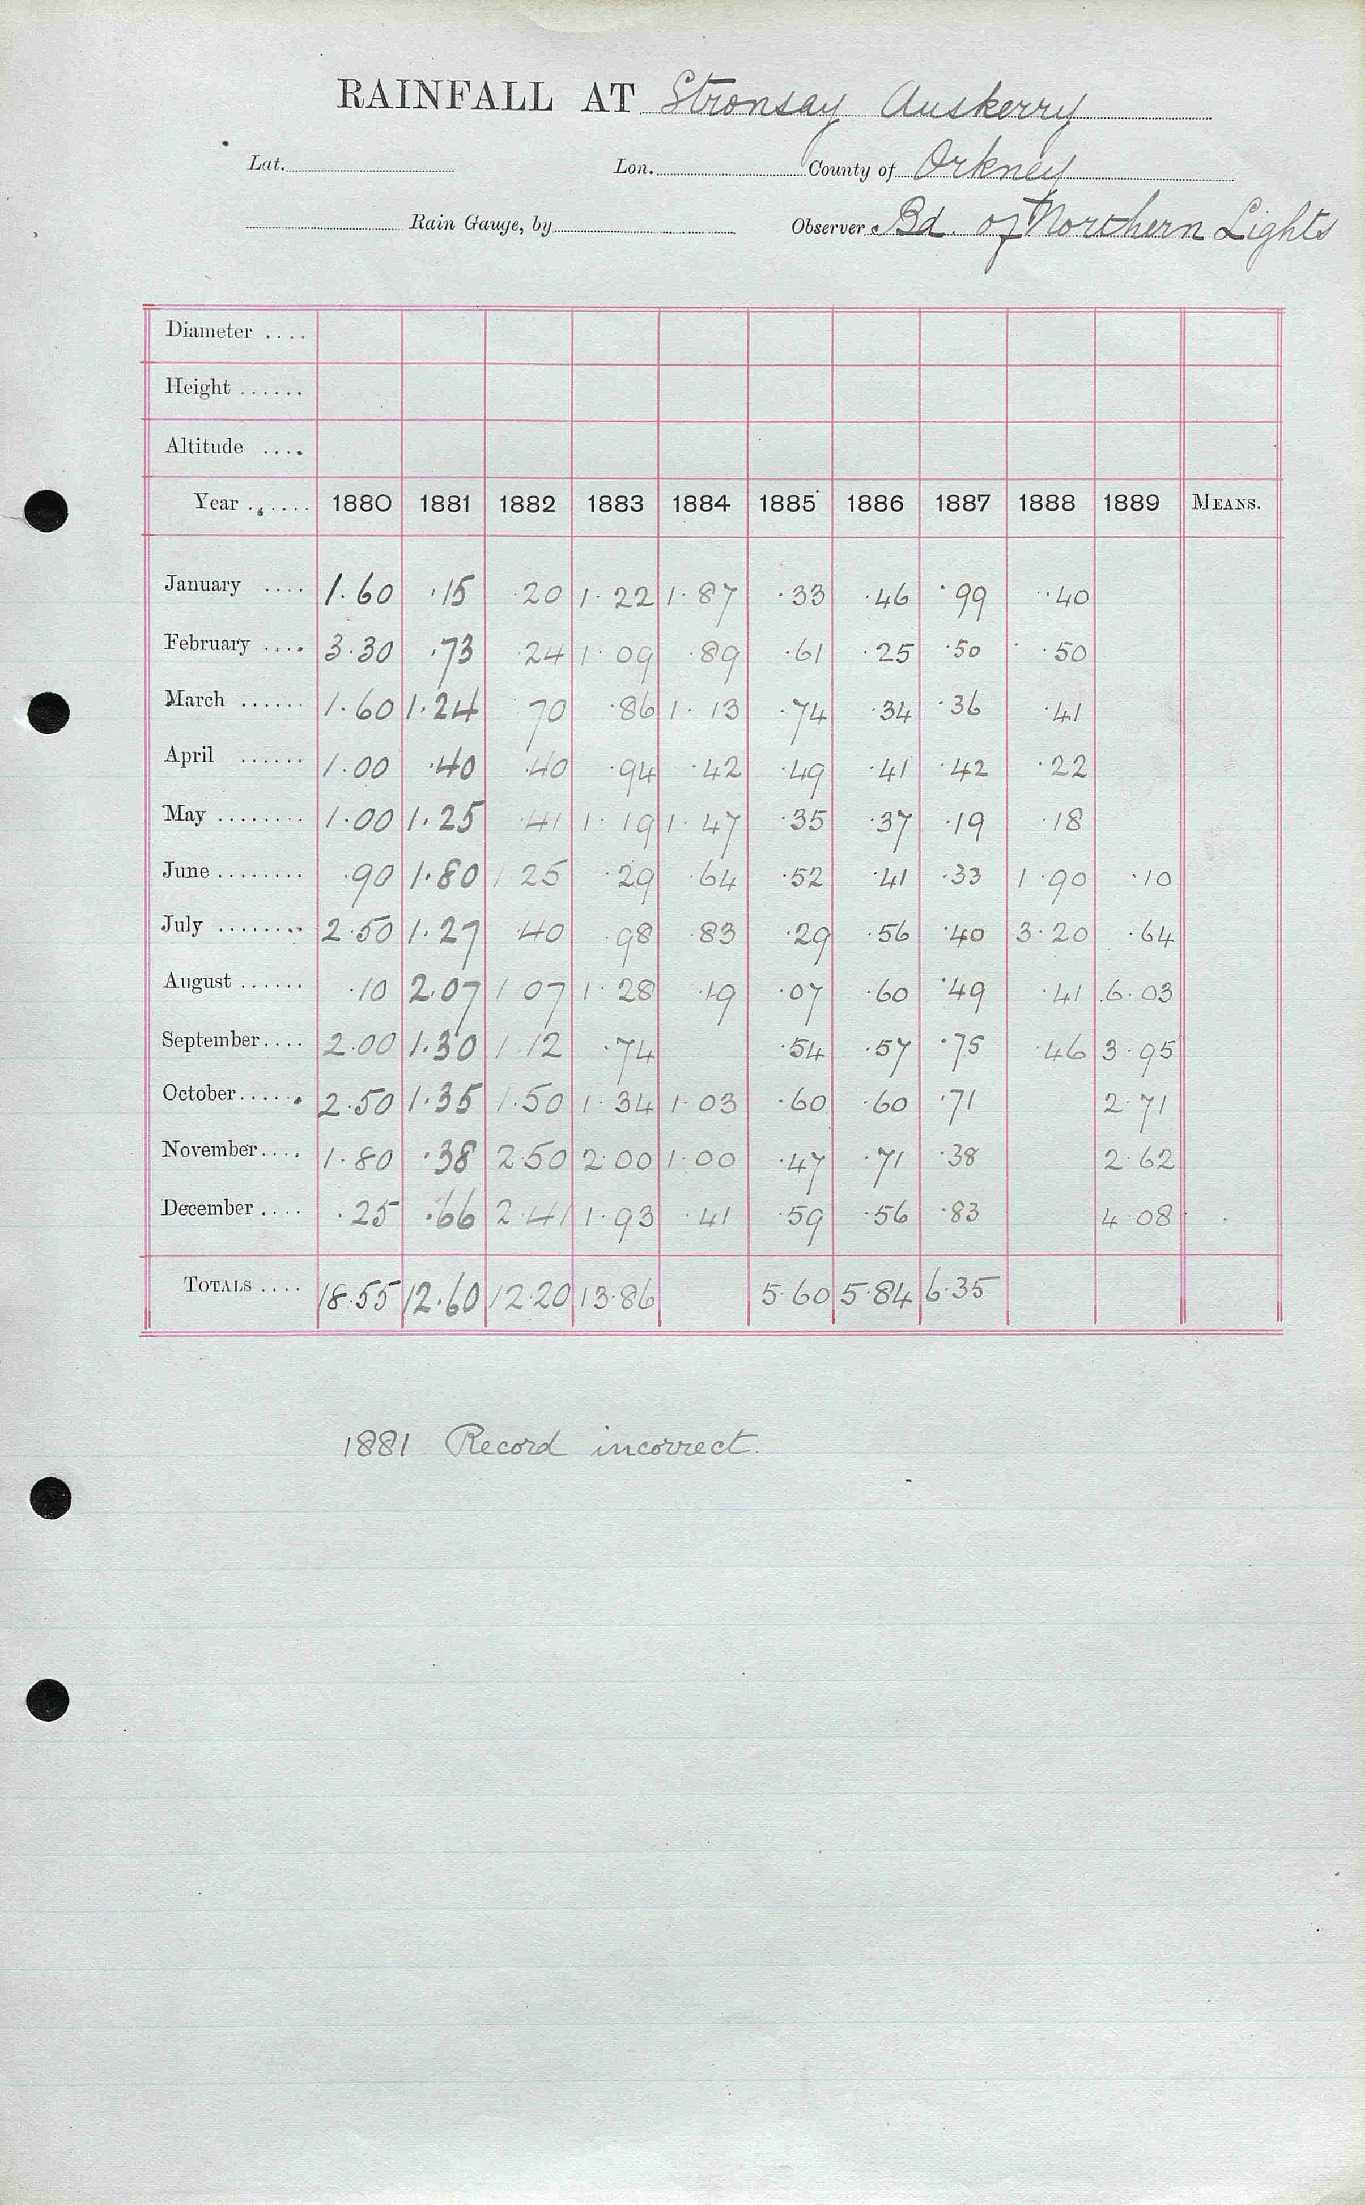 RAINFALL AT Stronsay Auskerry
Lat. Lon. County of Orkney
Rain Gauge, by Observer Bd. of Northern Lights
Diameter ....
Height ......
Altitude ....
Year ...... 1880 1881 1882 1883 1884 1885 1886 1887 1888 1889 MEANS.
January .... 1.60 .15 .20 1.22 1.87 .33 .46 .99 .40
February .... 3.30 .73 .24 1.09 .89 .61 .25 .50 .50
March ...... 1.60 1.24 .70 .86 1.13 .74 .34 .36 .41
April ...... 1.00 .40 .40 .94 .42 .49 .41 .42 .22
May ........ 1.00 1.25 .41 1.19 1.47 .35 .37 .19 .18
June ........ .90 1.80 1.25 .29 .64 .52 .41 .33 1.90 .10
July ........ 2.50 1.27 .40 .98 .83 .29 .56 .40 3.20 .64
August ...... .10 2.07 1.07 1.28 .19 .07 .60 .49 .41 6.03
September.... 2.00 1.30 1.12 .74 .54 .57 .75 .46 3.95
October...... 2.50 1.35 1.50 1.34 1.03 .60 .60 .71 2.71
November.... 1.80 .38 2.50 2.00 1.00 .47 .71 .38 2.62
December .... .25 .66 2.41 1.93 .41 .59 .56 .83 4.08
TOTALS .... 18.55 12.60 12.20 13.86 5.60 5.84 6.35
1881 Record incorrect.